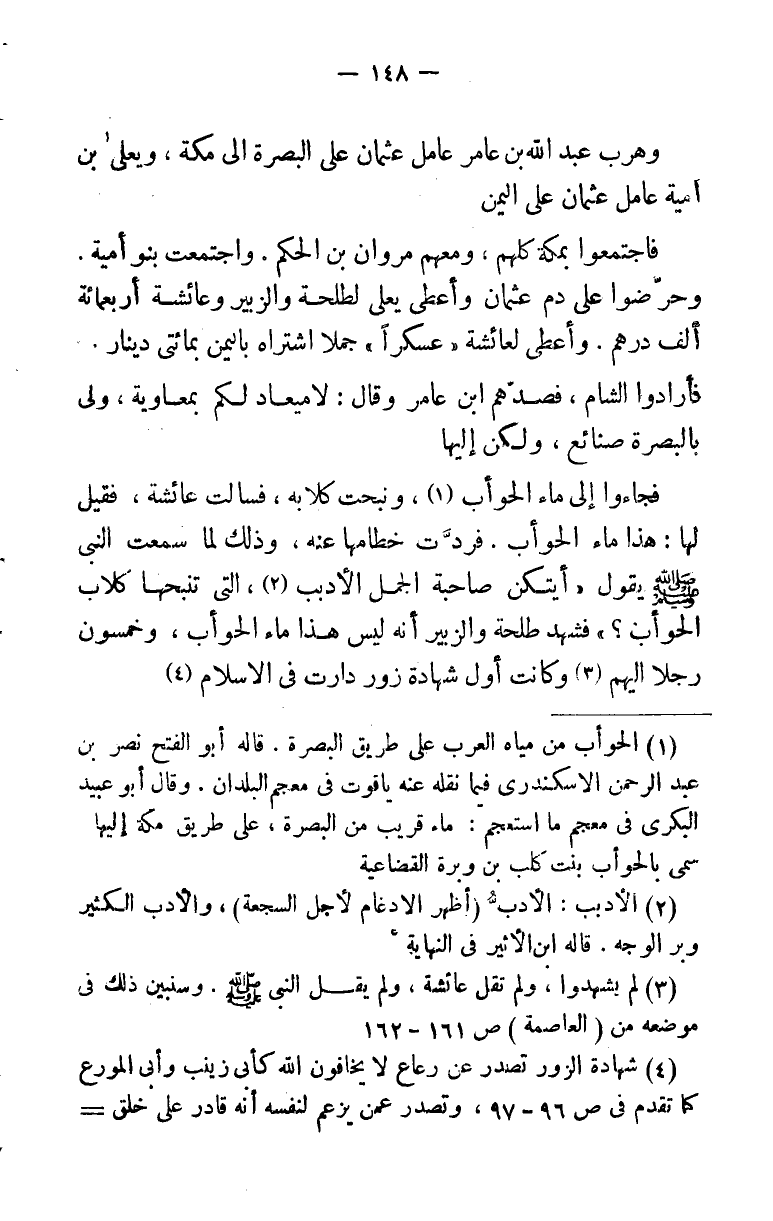 — ١٤٨ —
وهرب عبد الله بن عامر عامل عثمان على البصرة الى مكة ، ويعلى بن
أمية عامل عثمان على اليمن
فاجتمعوا بمكة كلهم ، ومعهم مروان بن الحكم . واجتمعت بنو أمية .
وحرّضوا على دم عثمان وأعطى يعلى لطلحة والزبير وعائشة أربعمائة
ألف درهم . وأعطى لعائشة « عسكراً » جملا اشتراه باليمن بمائتى دينار .
فأرادوا الشام ، فصدّهم ابن عامر وقال : لاميعاد لكم بمعاوية ، ولى
بالبصرة صنائع ، ولكن إليها
فجاءوا إلى ماء الحوأب (١) ، ونبحت كلابه ، فسالت عائشة ، فقيل
لها : هذا ماء الحوأب . فردَّت خطامها عنه ، وذلك لما سمعت النبى
ﷺ يقول « أيتكن صاحبة الجمل الأدبب (٢) ، التى تنبحها كلاب
الحوأب ؟ » فشهد طلحة والزبير أنه ليس هذا ماء الحوأب ، وخمسون
رجلا اليهم (٣) وكانت أول شهادة زور دارت فى الاسلام (٤)
(١) الحوأب من مياه العرب على طريق البصرة . قاله أبو الفتح نصر بن
عبد الرحمن الاسكندرى فيما نقله عنه ياقوت فى معجم البلدان . وقال أبو عبيد
البكرى فى معجم ما استعجم : ماء قريب من البصرة ، على طريق مكة إليها
سمى بالحوأب بنت كلب بن وبرة القضاعية
(٢) الأدبب : الأدب (أظهر الادغام لأجل السجعة) ، والأدب الكثير
وبر الوجه . قاله ابن الأثير فى النهاية
(٣) لم يشهدوا ، ولم تقل عائشة ، ولم يقل النبى ﷺ . وسنبين ذلك فى
موضعه من ( العاصمة ) ص ١٦١ – ١٦٢
(٤) شهادة الزور تصدر عن رعاع لا يخافون الله كأبى زينب وأبى المورع
كما تقدم فى ص ٩٦ – ٩٧ ، وتصدر عمن يزعم لنفسه أنه قادر على خلق =